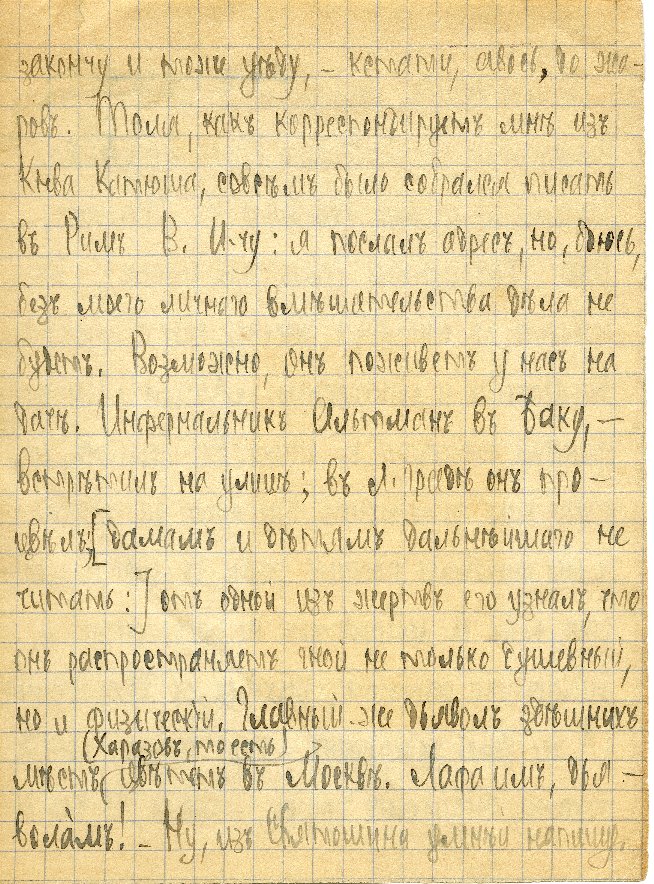 закончу и тоже уѣду, – кстати, авось, до жа-
ровъ. Тома, какъ корреспондируетъ мнѣ изъ
Кiева Катюша, совсѣмъ было собрался писать
въ Римъ В. И-чу: я послалъ адресъ, но, боюсь,
безъ моего личнаго вмѣшательства дѣла не
будетъ. Возможно, онъ поживетъ у насъ на
дачѣ. Инфернальникъ Альтманъ въ Баку, –
встрѣтилъ на улицѣ; въ Л.градѣ онъ про-
цвѣлъ; [дамамъ и дѣтямъ дальнѣйшаго не
читать:] отъ одной изъ жертвъ его узналъ, что
онъ распространяетъ гной не только душевный,
но и физическiй. Главный-же дьяволъ здѣшнихъ
мѣстъ (Харазовъ, то есть) цвѣтетъ въ Москвѣ. Лафа имъ, дья-
вола́мъ! – Ну, изъ Святошина умнѣй напишу.